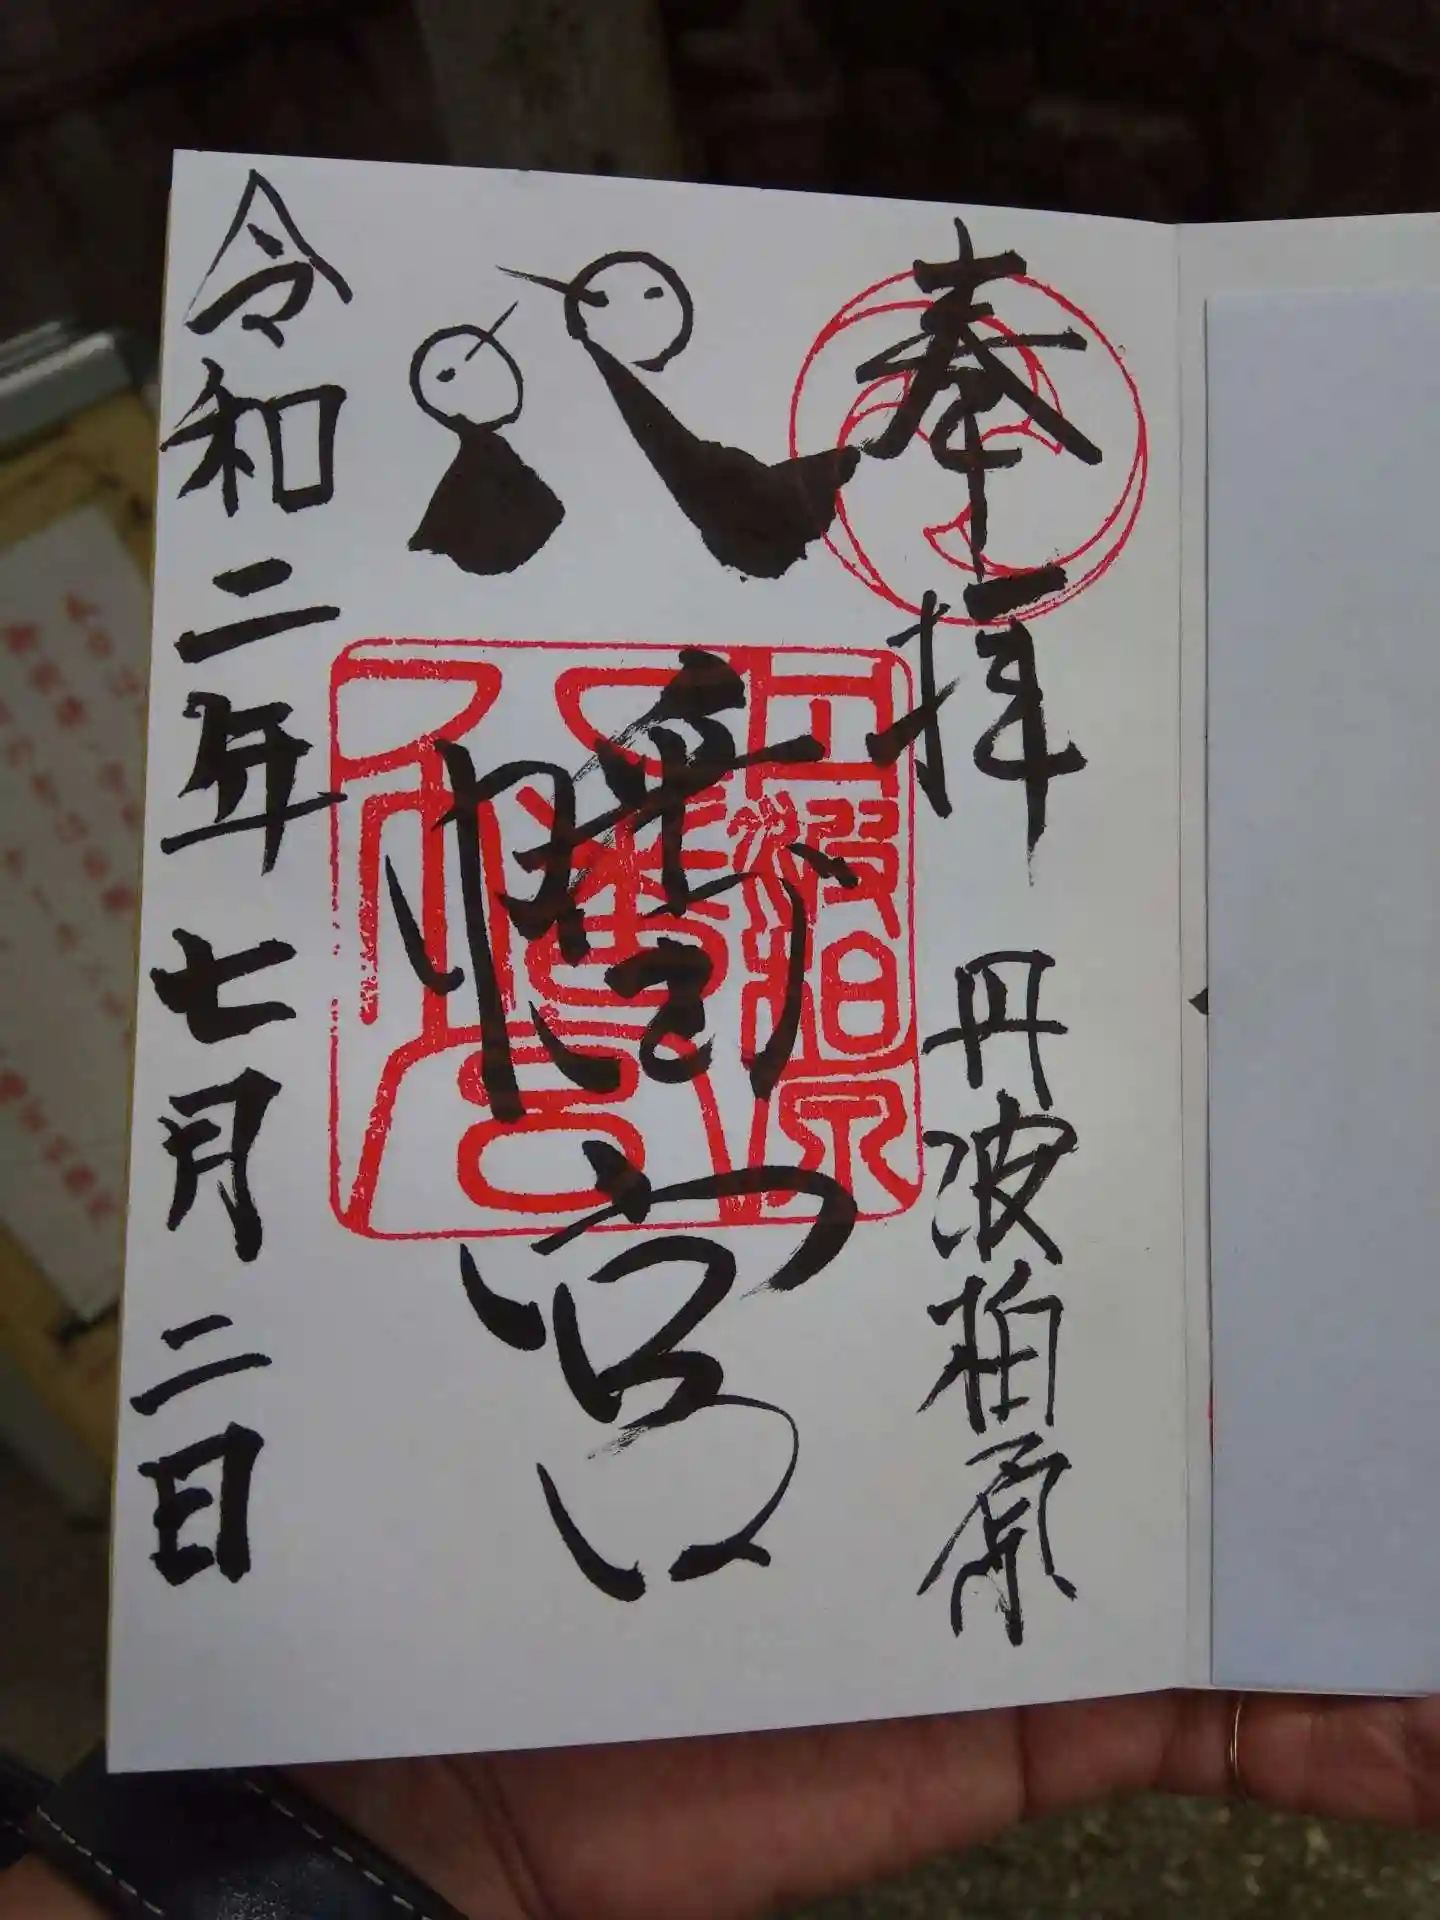 奉拝 丹波柏原
八幡宮
丹波柏原八幡宮
令和二年七月二日